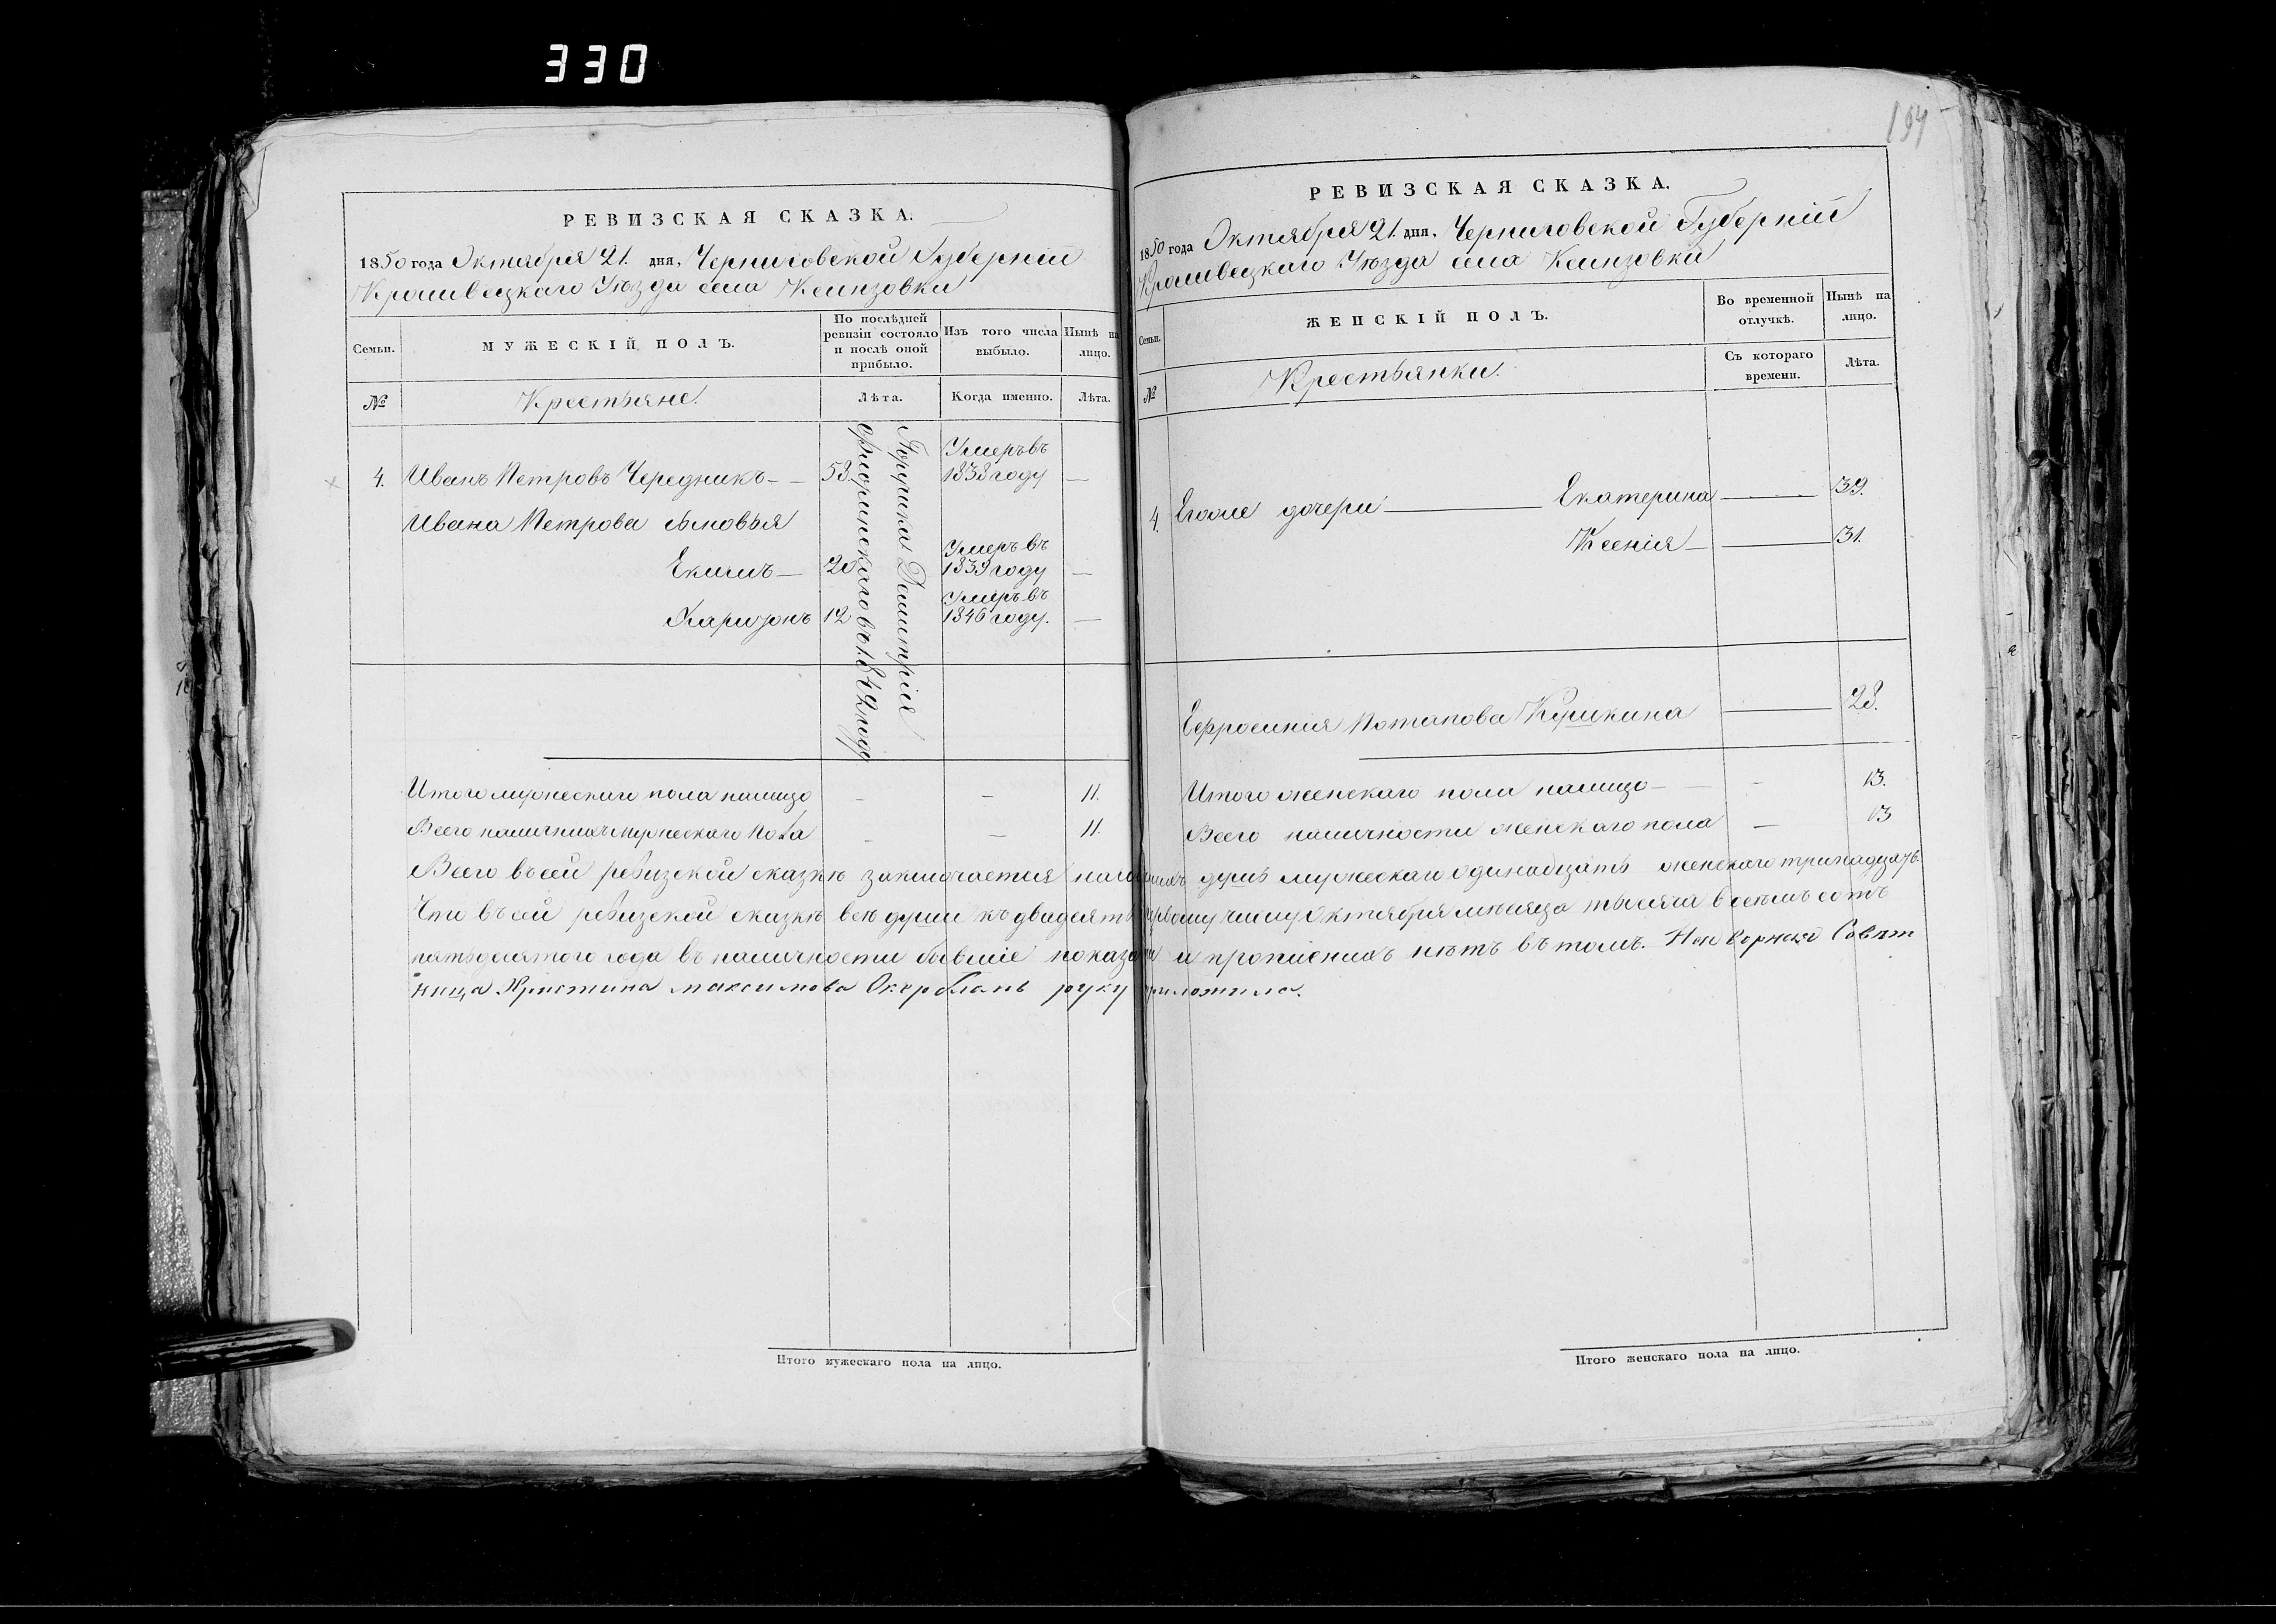 330
РЕВИЗСКАЯ СКАЗКА.
1850 года Октября 21. дня. Черниговской Губерніи
Кролевецкаго Уѣзда села
Семьи.
МУЖЕСКІЙ ПОЛЪ.
По послѣдней ревизіи состояло и послѣ оной прибыло.
Изъ того числа выбыло.
Нынѣ на лицо.
№
Крестьяне.
Лѣта.
Когда именно.
Лѣта.
Поручика Димитрія
въ 1842 году
4. Иванъ Петровъ Чередникъ — 58 Умеръ въ 1838 году —
Ивана Петрова сыновья
Екимъ — 20 Умеръ въ 1839 году —
Харитонъ 12 Умеръ въ 1846 году. —
Итого мужескаго пола налицо — — 11.
Всего мужескаго пола — — 11.
Итого мужескаго пола на лицо.
194
РЕВИЗСКАЯ СКАЗКА.
1850 года Октября 21. дня. Черниговской Губерніи
Кролевецкаго Уѣзда села
Семьи.
ЖЕНСКІЙ ПОЛЪ.
Во временной отлучкѣ.
Нынѣ на лицо.
№
Крестьянки.
Съ котораго времени.
Лѣта.
4. дочери — Екатерина — 39.
Ксенія — 31.
Ефросинія Потапова — 28.
Итого женскаго пола налицо — — 13.
Всего наличности женскаго пола — 13
Всего въ сей ревизской сказкѣ заключается душъ мужескаго одинадцать женскаго тринадцать.
Что въ сей ревизской сказкѣ всѣ души къ двадцать первому числу Октября мѣсяца тысяча восемь сотъ
пятьдесятого года въ наличности бывшіе показаны и прописныхъ нѣтъ въ томъ. Совѣт
ница Христина Максимова руку приложила.
Итого женскаго пола на лицо.